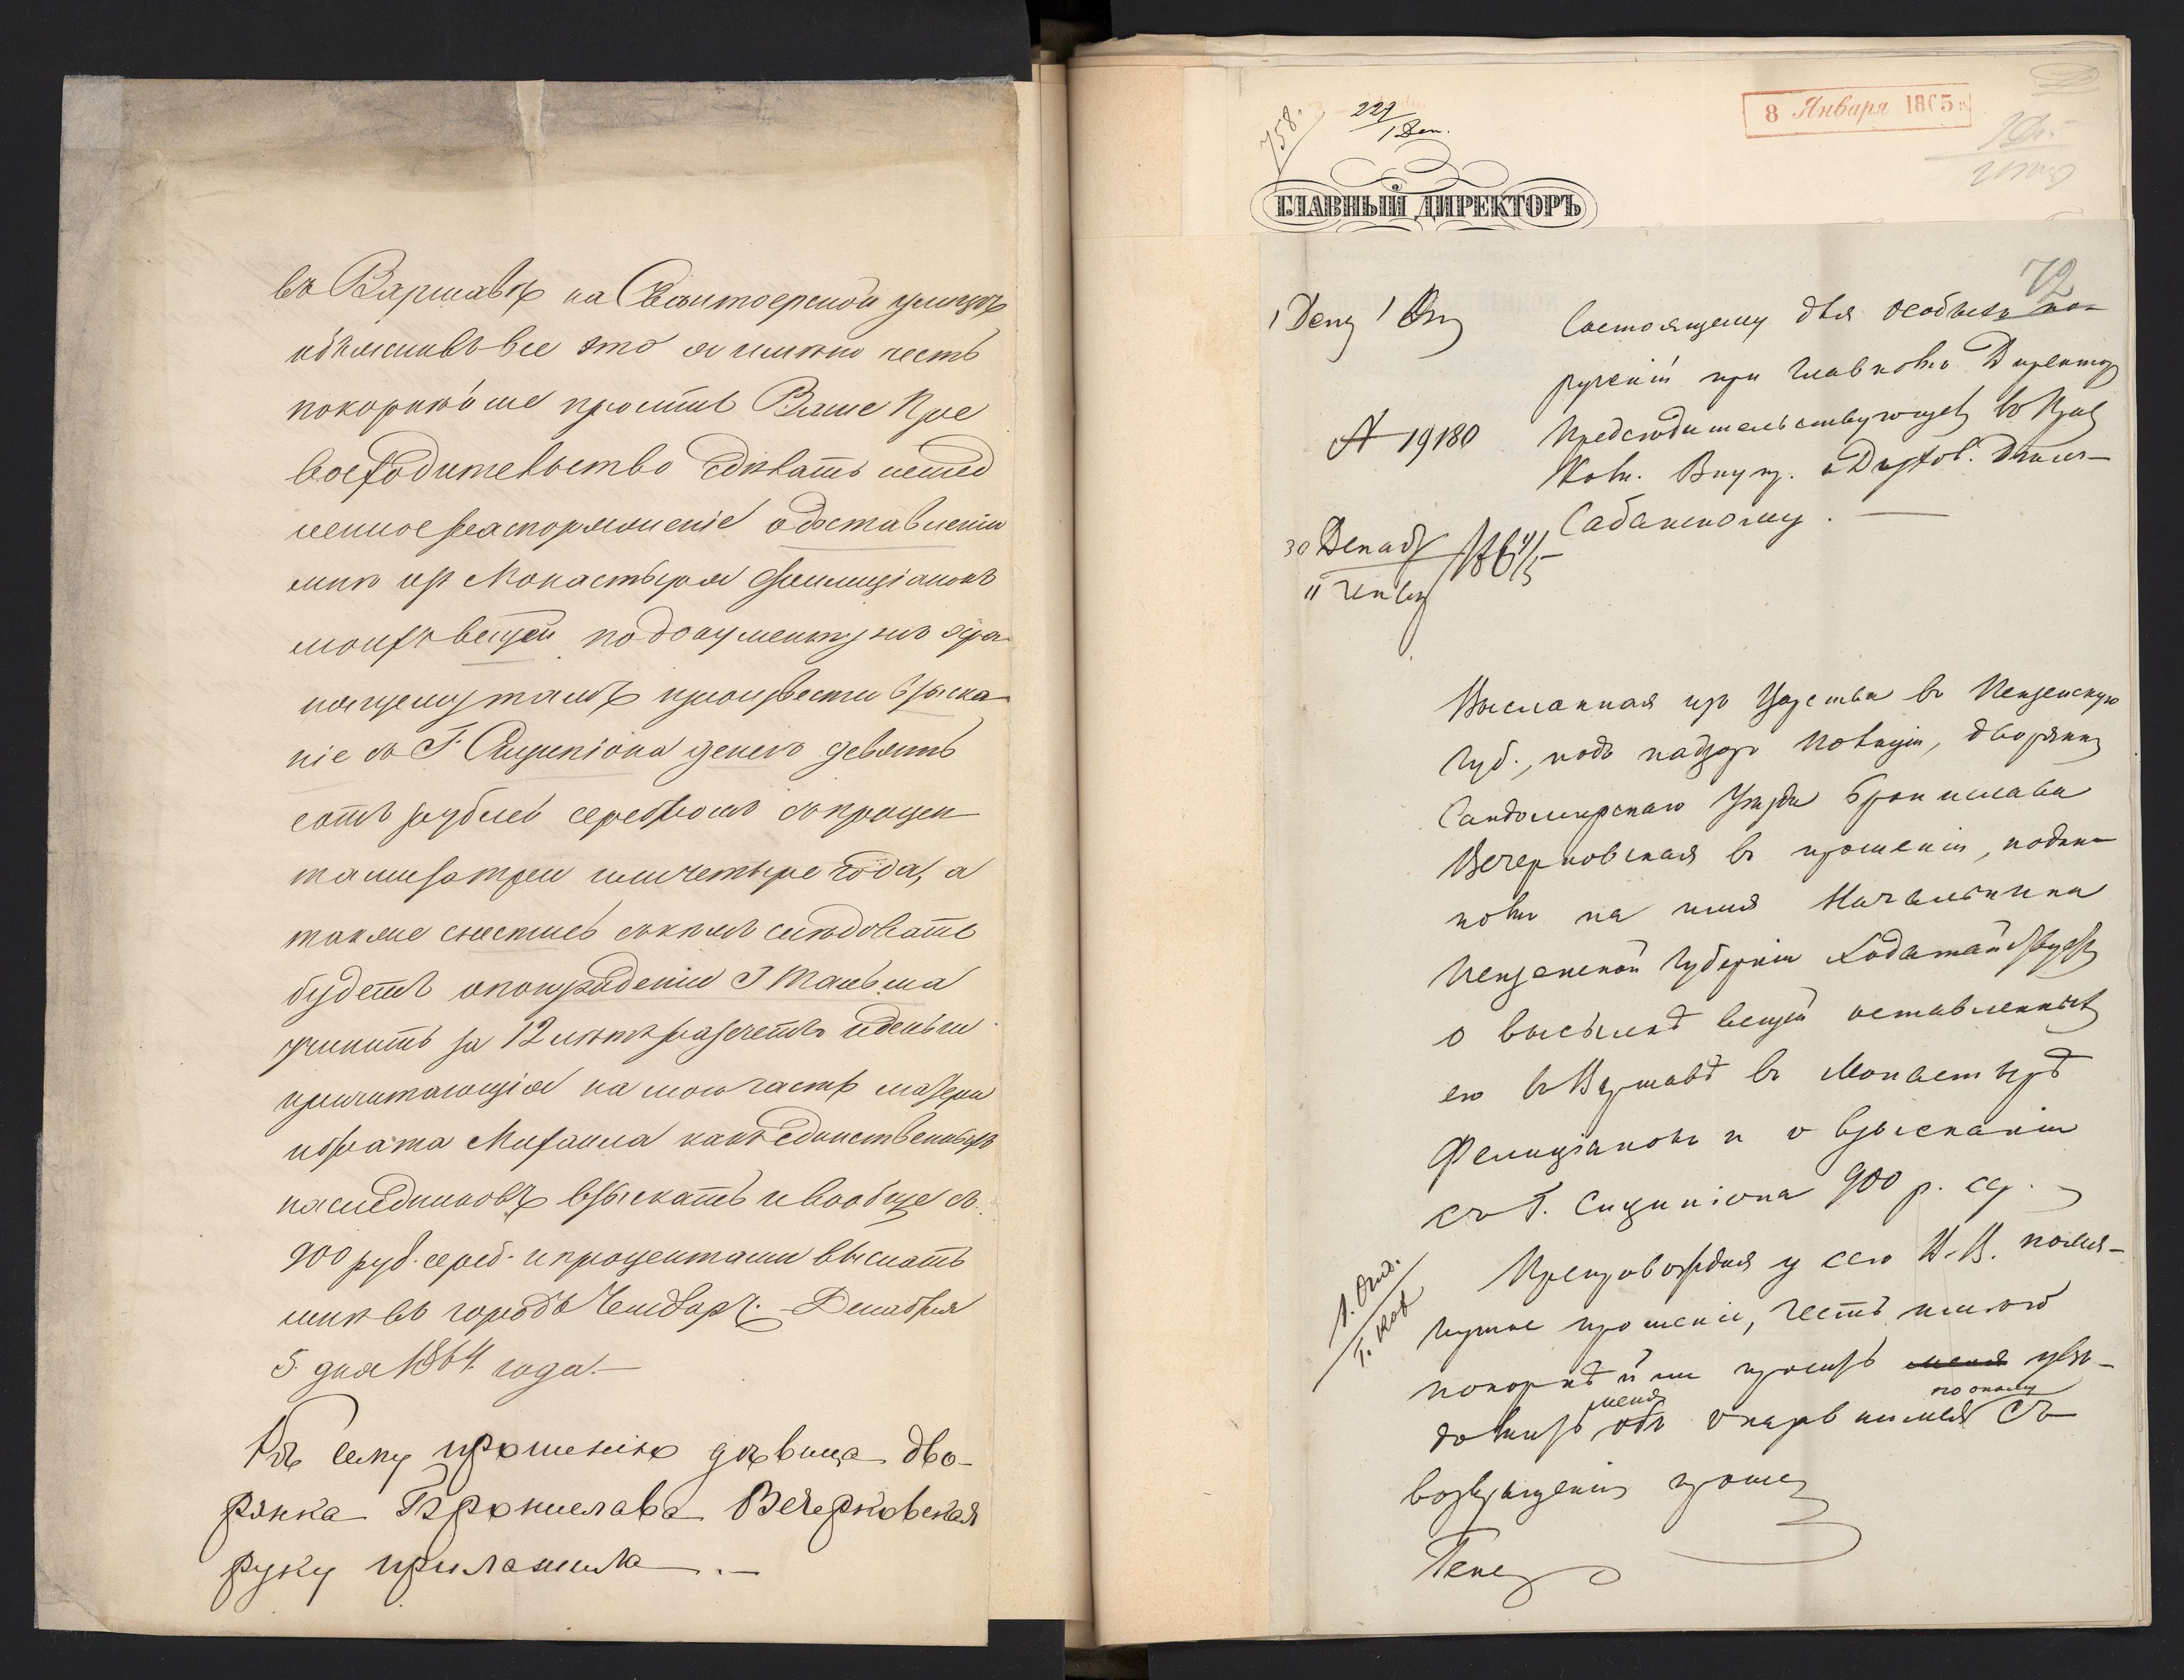 въ Варшавѣ на Свентоерской улицѣ
объяснивъ все это я имѣю честь
покорнѣйше просить Ваше Пре
восходительство сдѣлать немед
ленное распоряженіе о доставленіи
мнѣ изъ Монастыря Фелиціанокъ
моихъ вещей по документу
произвести взыска
ніе съ Г. Сципіона денегъ девять
сотъ рублей серебромъ съ процен
тами за три или четыре года, а
также снестись съ кѣмъ слѣдовать
будетъ о понужденіи
учинить за 12 лѣтъ разсчетъ и деньги
причитающія на мою часть матери
и брата Михаила какъ единственныхъ
наслѣдниковъ взыскать и вообще съ
900 руб. сереб. и процентами выслать
мнѣ въ городъ Чембаръ. Декабря
5. дня 1864. года.—
Къ сему прошенію дѣвица дво-
рянка Брониславa Вечерковская
руку приложила.—
758.
227
1 Деп.
8 Января 1865 г.
ГЛАВНЫЙ ДИРЕКТОРЪ
72
№ 19180
30 Декаб
11 Генв
1864/5
Состоящему для особыхъ по-
рученій при Главномъ Директор
Предсѣдательствующ въ Прав
Ком. Внутр. и Духов. Дѣлъ—
Сабанскому.—
Высланная изъ Царства въ Пензенскую
Губ., подъ надзоръ Полиціи, дворянка
Сандомирскаго Уѣзда Бронислава
Вечерковская въ прошеніи, подан-
номъ на имя Начальника
Пензенской Губерніи ходатайствуетъ
о высылкѣ вещей оставленныхъ
ею въ Варшавѣ въ Монастырѣ
Фелиціанокъ и о взысканіи
съ Г. Сципіона 900 р. ср.
Препровождая у сего В. В. помя-
нутое прошеніе, честь имѣю
покорнѣйше просить меня увѣ-
меня по оному
домить объ съ
возвращеніемъ прошен
1. Отд.